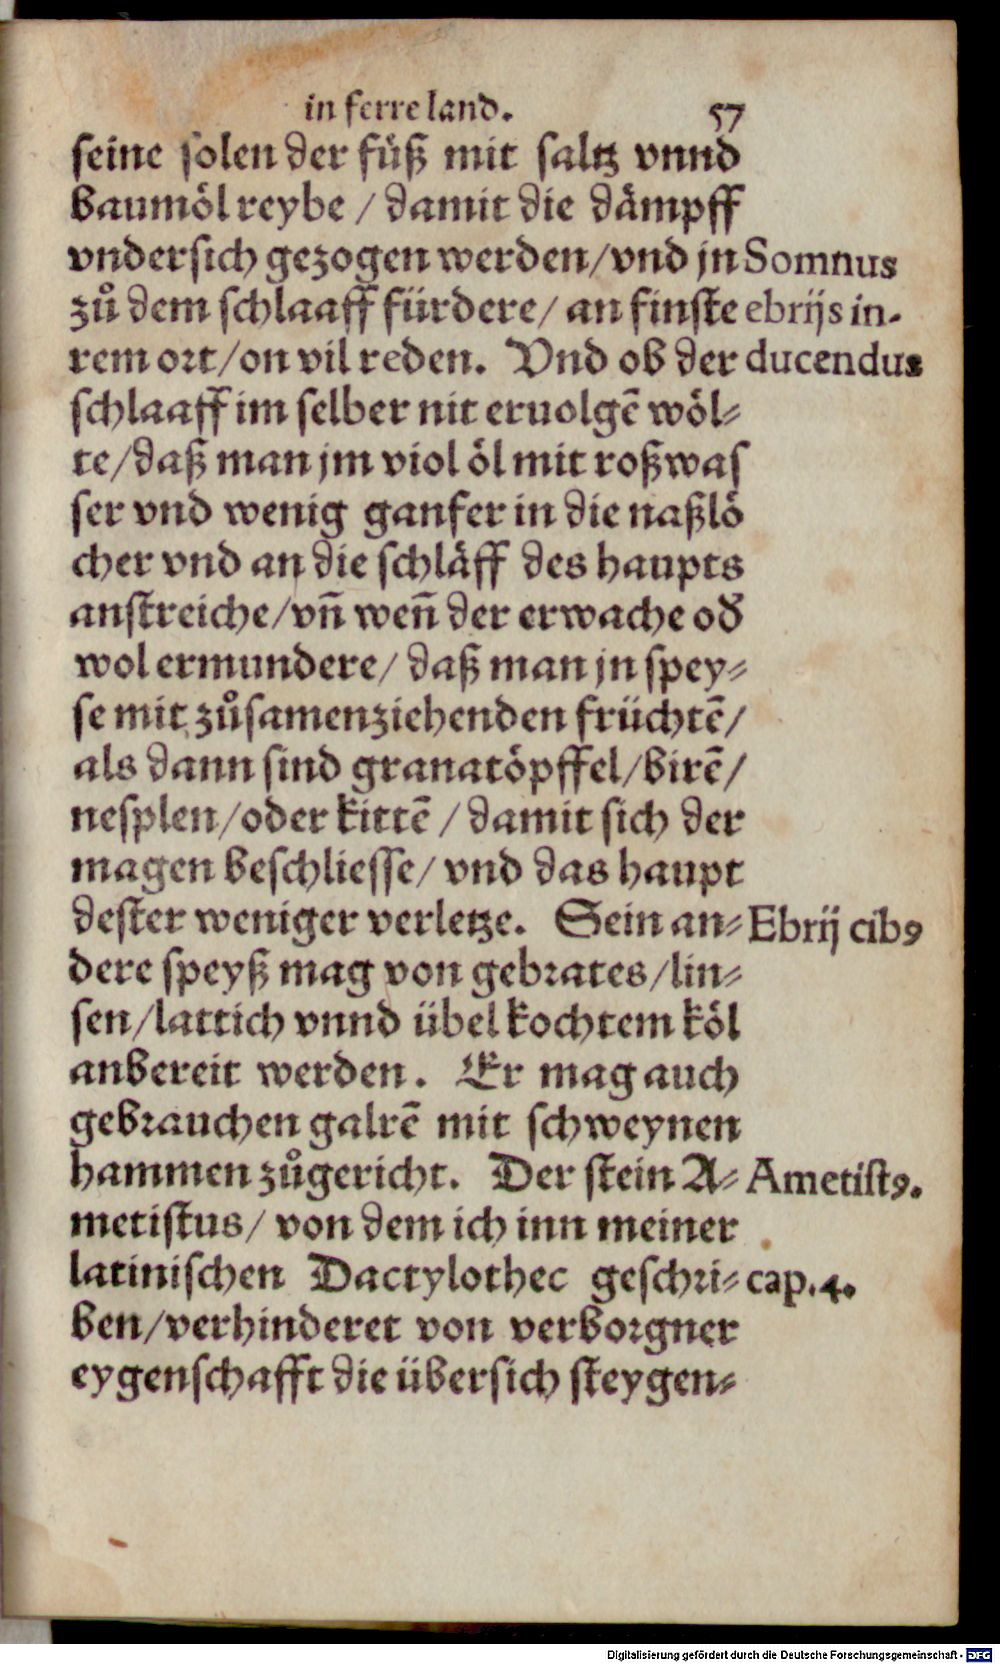 in ferre land. 57
seine solen der füß mit saltz vnnd
baumöl reybe / damit die dämpff
vndersich gezogen werden/vnd jn Somnus
zů dem schlaaff fürdere/ an finste ebrijs in-
rem ort/on vil reden. Vnd ob der ducendus
schlaaff im selber nit eruolgē wöl-
te/daß man jm viol öl mit roßwas
ser vnd wenig ganfer in die naßlö
cher vnd an die schläff des haupts
anstreiche/vn̄ wen̄ der erwache od̕
wol ermundere/ daß man jn spey-
se mit zůsamenziehenden früchtē/
als dann sind granatöpffel/birē/
nesplen/oder kittē / damit sich der
magen beschliesse/ vnd das haupt
dester weniger verletze. Sein an- Ebrij cibꝰ
dere speyß mag von gebrates/lin-
sen/lattich vnnd übel kochtem köl
anbereit werden. Er mag auch
gebrauchen galrē mit schweynen
hammen zůgericht. Der stein A- Ametistꝰ.
metistus/ von dem ich inn meiner
latinischen Dactylothec geschri- cap.4.
ben/verhinderet von verborgner
eygenschafft die übersich steygen-
Digitalisierung gefördert durch die Deutsche Forschungsgemeinschaft - DFG